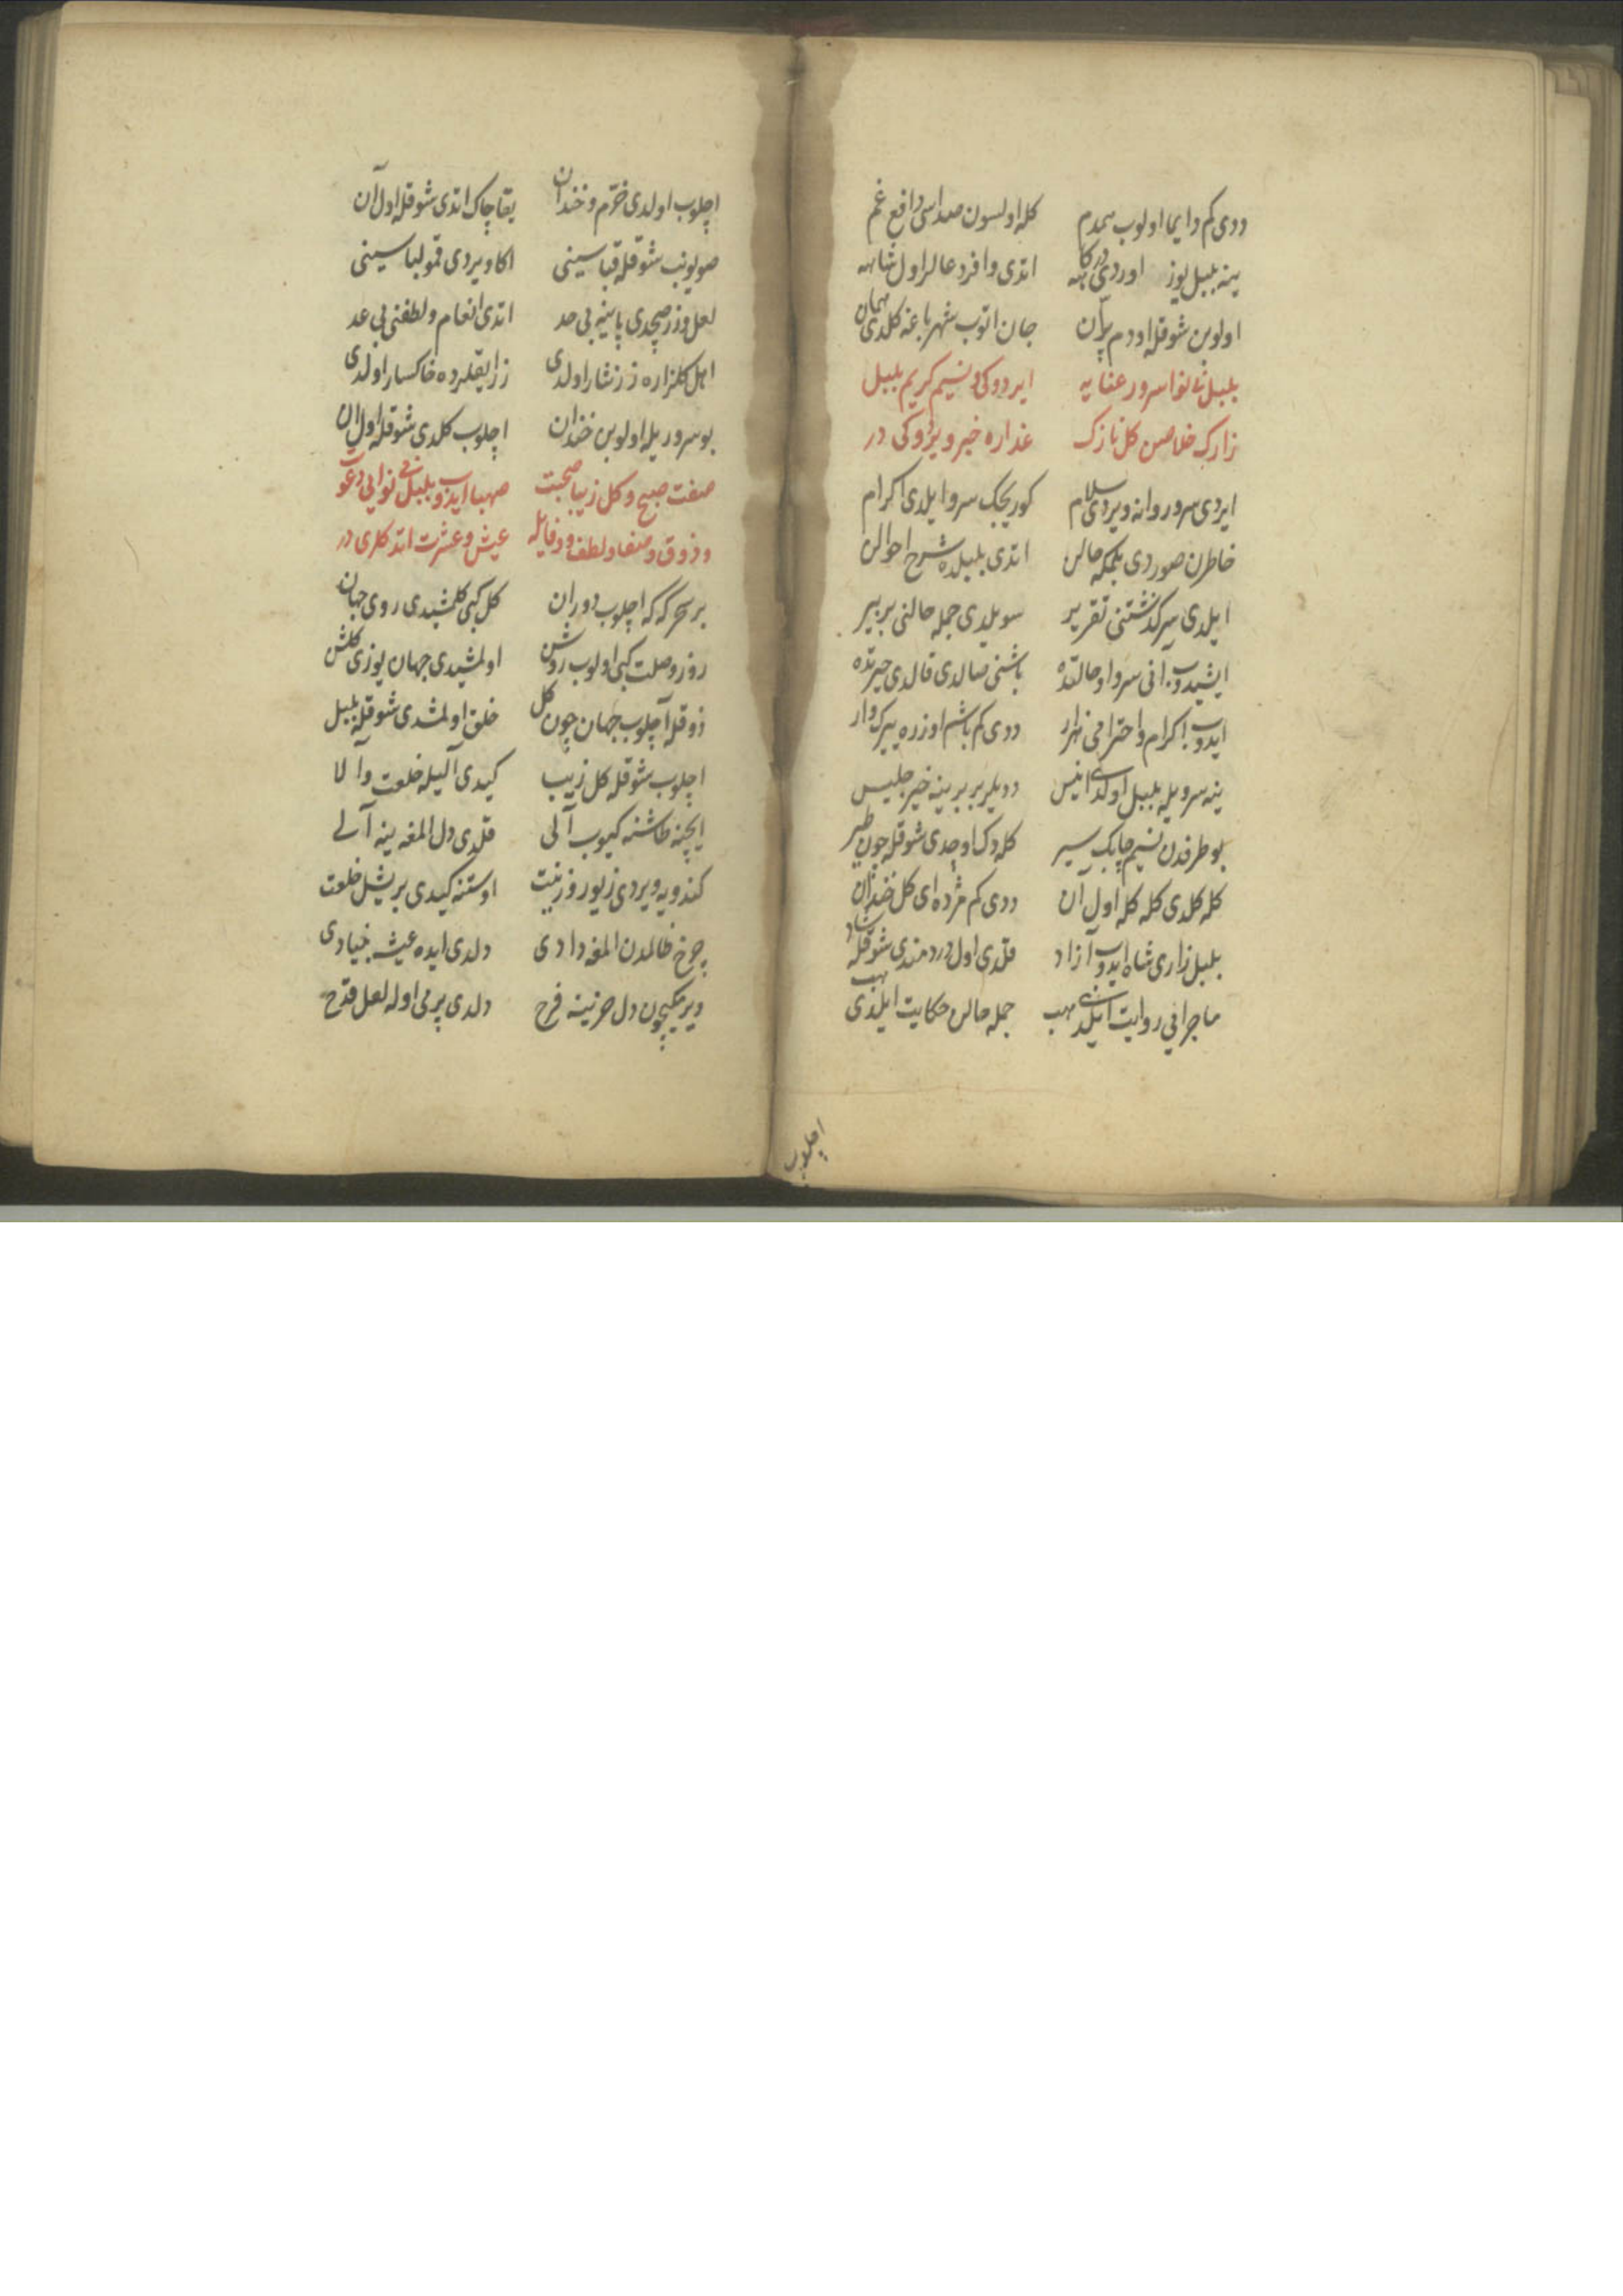 ددی كم دایما اولوب همدم كله اولسون صداسی دافع غم
ینه بلبل یوز اوردی درگاهه اتدی وافر دعالر اول شاهه
اولوبن شوقله اودم پرّان جان اتوب شهر باغه كلدی همان
بلبل نالنوا سرور عنایه ایردوكی و نسیم كریم بلبل
زارك خلاصن كل نازك عذاره خبر ویردوكی در
ایردی سرو روانه ویردی سلام كوریجك سرو ایلدی اكرام
خاطرن صوردی بلمكه حالن اتدی بلبلده شرح احوالن
ایلدی سركذشتنی تقریر سویلدی جمله حالنی بر بیر
ایشیدوب انی سرو او حالتده باشنی صالدی قالدی حیرتده
ایدوب اكرام و احترامی هزار ددی كم باشم اوزره یرك وار
ینه سرویله بلبل اولدی انیس ددیلر بربرینه خیر جلیس
بو طرفدن نسیم چابك سیر كله دك اوچدی شوقله چون طیر
كله كلدی كله كله اول ان ددی كم مژده ای كل خندان
بلبل زاری شاه ایدوب آزاد قلدی اول دردمندی شوقله شاد
ماجرایی روایت ایلدی هب جمله حالن حكایت ایلدی هب
اچلوب
اچلوب اولدی خرّم و خندان یقا چاك اتدی شوقله اول آن
صویونب شوقله قباسینی اكا ویردی قمو لباسینی
لعل و زر صچدی پاینه بی حد اتدی انعام و لطفنی بی عد
اهل كلزاره زر نثار اولدی زر ایقلرده خاكسار اولدی
بو سروریله اولوبن خندان اچلوب كلدی شوقله اول ان
صفت صبح و كل زیبا صحبت صهبا ایدوب بلبل بی نوایی دعوت
و ذوق و صفا و لطف و وفایله عیش و عشرت اتدكلری در
بر سحر كه كه اچلوب دوران كل كبی كلمشیدی روی جهان
روز وصلت كبی اولوب روشن اولمشیدی جهان یوزی كلشن
ذوقله آچلوب جهان چون كل خلق اولمشدی شوقله بلبل
اچلوب شوقله كل زیبا كیدی آلیله خلعت والا
ایچنه طاشنه كیوب آلی قلدی دل المغه ینه آلی
كندویه ویردی زیور و زینت اوستنه كیدی بر یشل خلعت
چرخ ظالمدن المغه دادی دلدی ایده عیش بنیادی
ویرمكیچون دل حزینه فرح دلدی پر می اوله لعل قدح